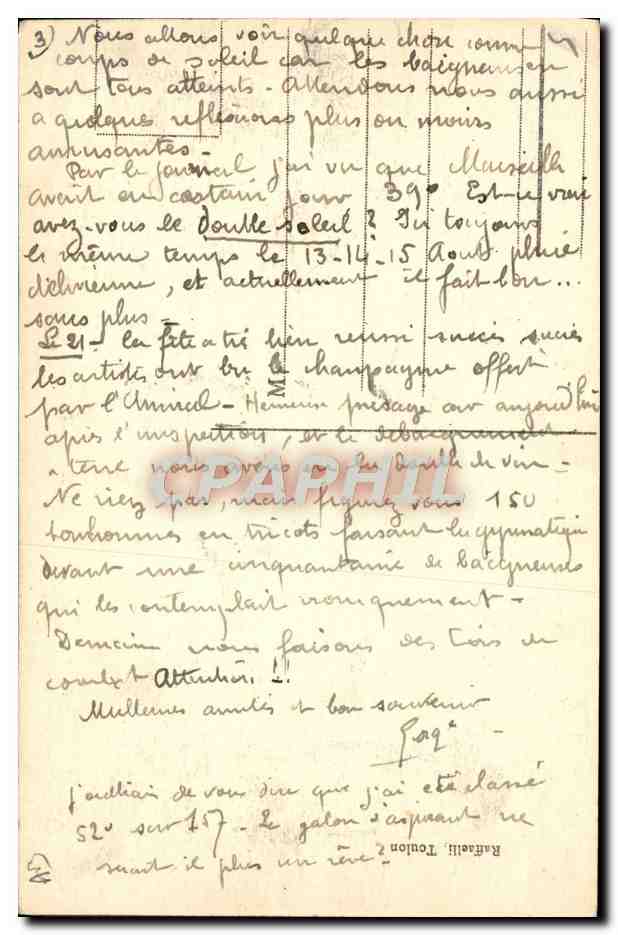 3) Nous allons voir quelque chose comme
coups de soleil car les baigneuses en
sont tous atteints - Attendons nous aussi
a quelques reflexions plus ou moins
amusantes -
Par le journal j'ai vu que Marseille
avait eu certain jour 39° Est-ce vrai
avez-vous le double soleil ? Ici toujours
le même temps le 13-14-15 Aout pluie
diluvienne, et actuellement il fait bon...
sans plus -
Le 21 - la fête a très bien reussi succès succès
les artistes ont bu le champagne offert
par l'Amiral - Heureux présage car aujourd'hui
après l'inspection, et le debarquement
a terre nous avons eu la double de vin -
Ne riez pas, mais figurez vous 150
bonhommes en tricots faisant la gymnatique
devant une cinquantaine de baigneuses
qui les contemplait ironiquement -
Demain nous faisons des tirs de
combat Attention !!
Meilleures amitiés et bon souvenir
J'oubliais de vous dire que j'ai été classé
52e sur 157 - Le galon d'aspirant ne
serait il plus un rêve ?
M
CPARPHIL
Raffaelli, Toulon